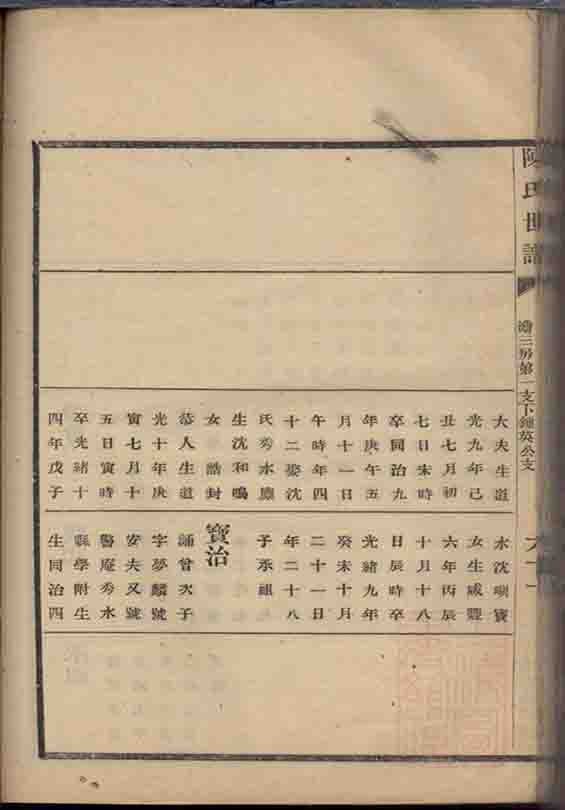 陳氏世譜
三房第一支下鍾英公支
大夫生道
光九年己
丑七月初
七日未時
卒同治九
年庚午五
月十一日
午時年四
十二娶沈
氏秀水廩
生沈和鳴
女 誥封
恭人生道
光十年庚
寅七月十
五日寅時
卒光緒十
四年戊子
水沈寶
女生咸豐
六年丙辰
十月十八
日辰時卒
光緒九年
癸未十月
二十一日
年二十八
子承祖
寶治
誦曾次子
字夢麟號
安夫又號
庵秀水
縣學附生
生同治四